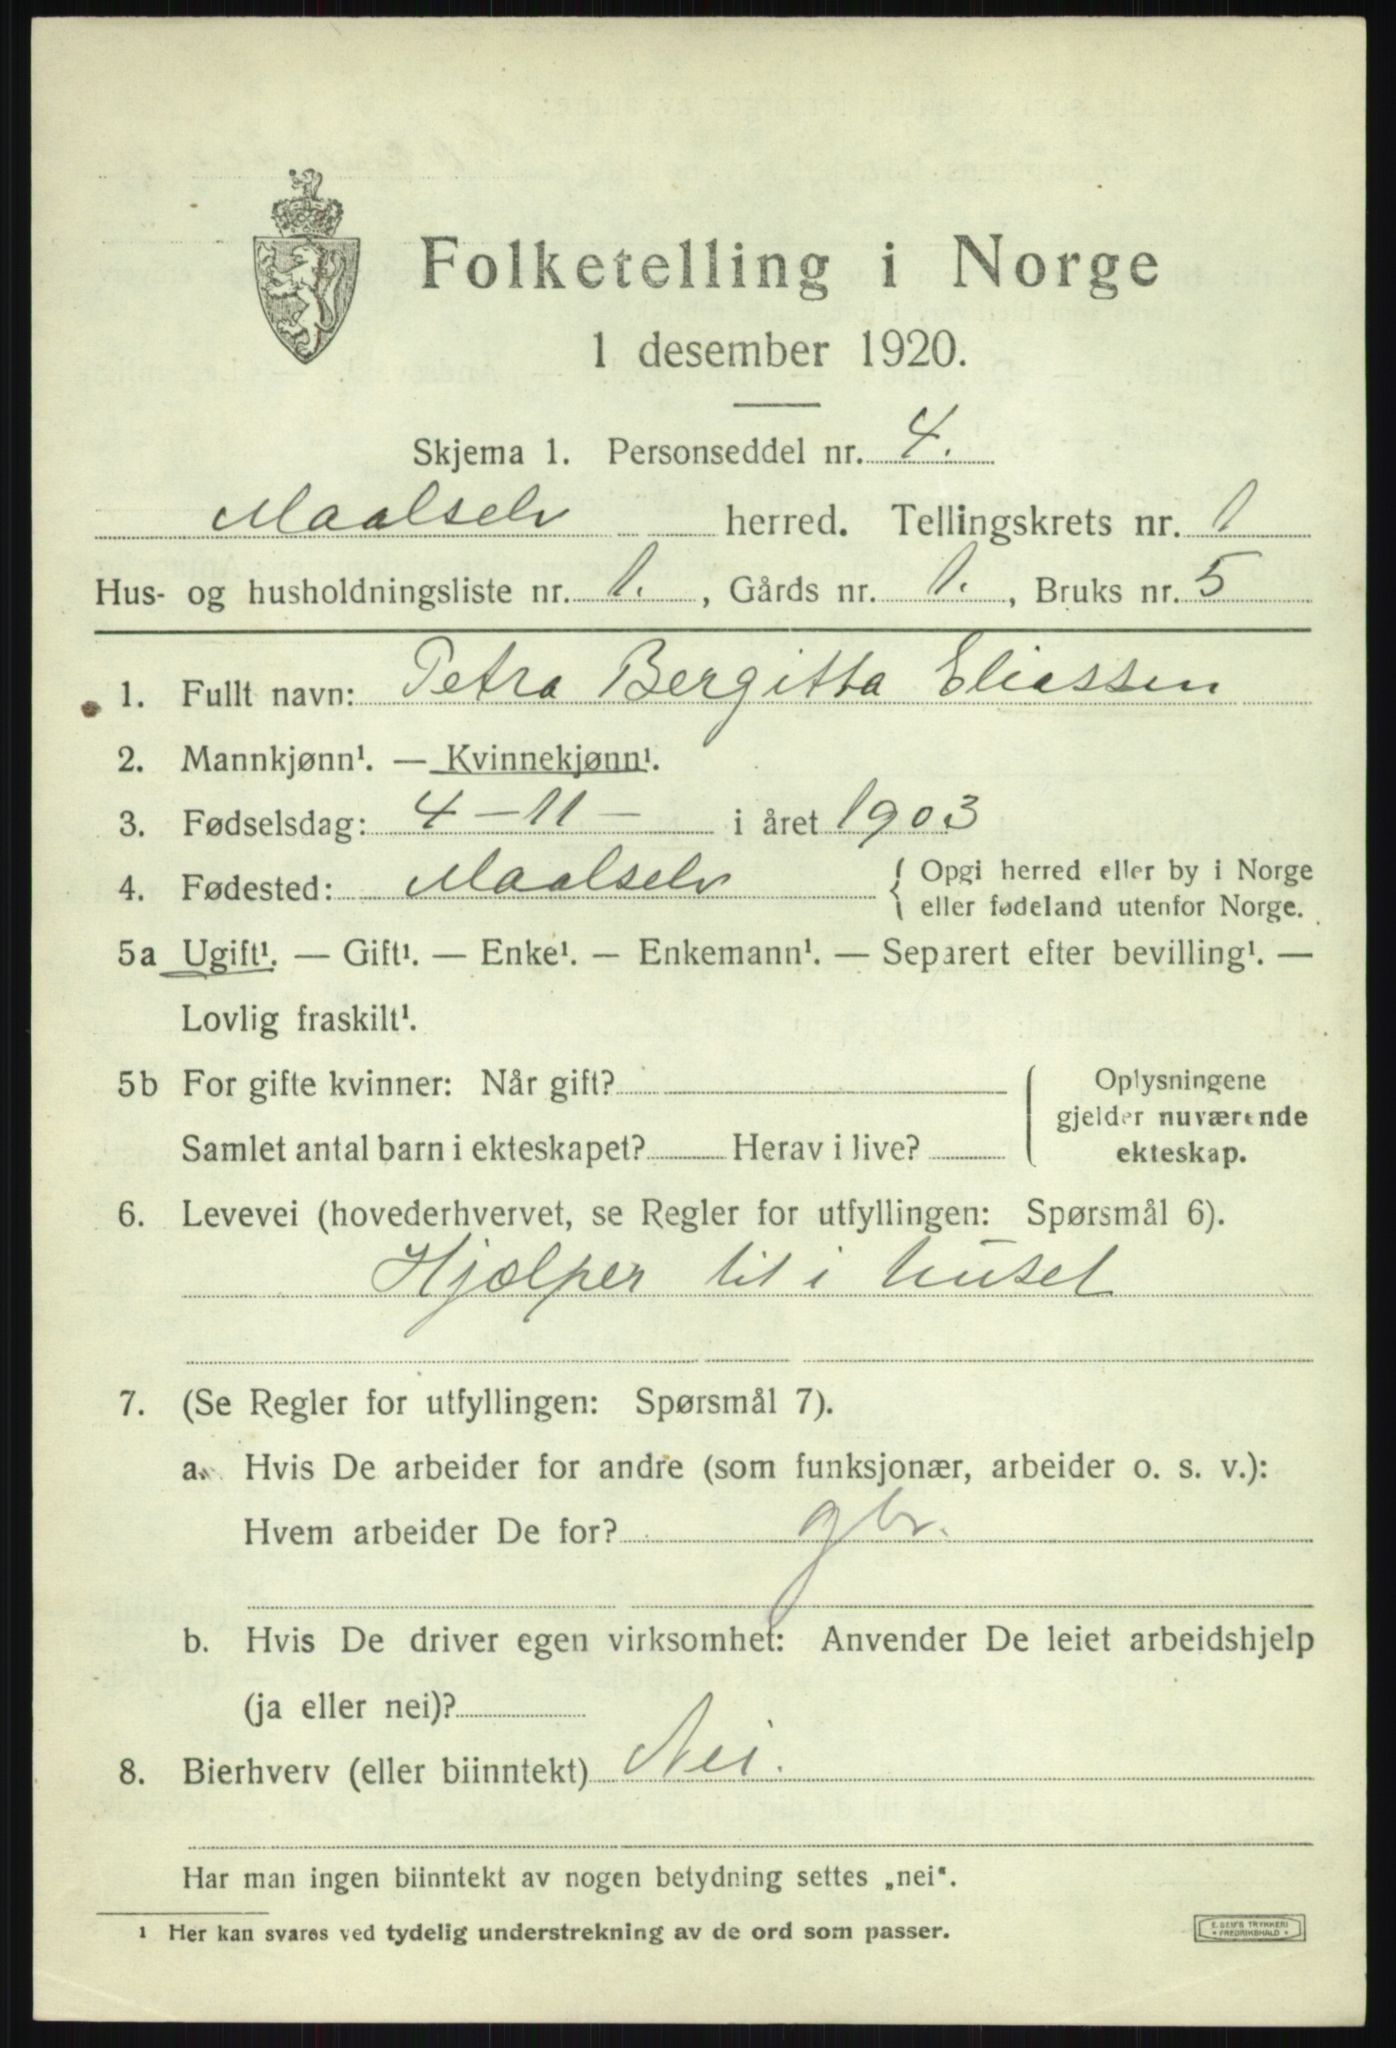 Folketelling i Norge
1 desember 1920.
Skjema 1. Personseddel nr. 4.
Maalselv herred. Tellingskrets nr. 1
Hus- og husholdningsliste nr. 1., Gårds nr. 1., Bruks nr. 5
1. Fullt navn: Petra Bergitta Eliassen
2. Mannkjønn¹. — Kvinnekjønn¹.
3. Fødselsdag: 4 - 11 - i året 1903
4. Fødested: Maalselv { Opgi herred eller by i Norge
eller fødeland utenfor Norge.
5a Ugift¹. — Gift¹. — Enke¹. — Enkemann¹. — Separert efter bevilling¹. —
Lovlig fraskilt¹.
5b For gifte kvinner: Når gift?
Samlet antal barn i ekteskapet? Herav i live?
Oplysningene
gjelder nuværende
ekteskap.
6. Levevei (hovederhvervet, se Regler for utfyllingen: Spørsmål 6).
Hjælper til i huset
7. (Se Regler for utfyllingen: Spørsmål 7).
a. Hvis De arbeider for andre (som funksjonær, arbeider o. s. v.):
Hvem arbeider De for? gbr.
b. Hvis De driver egen virksomhet: Anvender De leiet arbeidshjelp
(ja eller nei)?
8. Bierhverv (eller biinntekt) Nei.
Har man ingen biinntekt av nogen betydning settes „nei“.
¹ Her kan svares ved tydelig understrekning av de ord som passer.
E. SEM'S TRYKKERI
• FREDRIKSHALD •